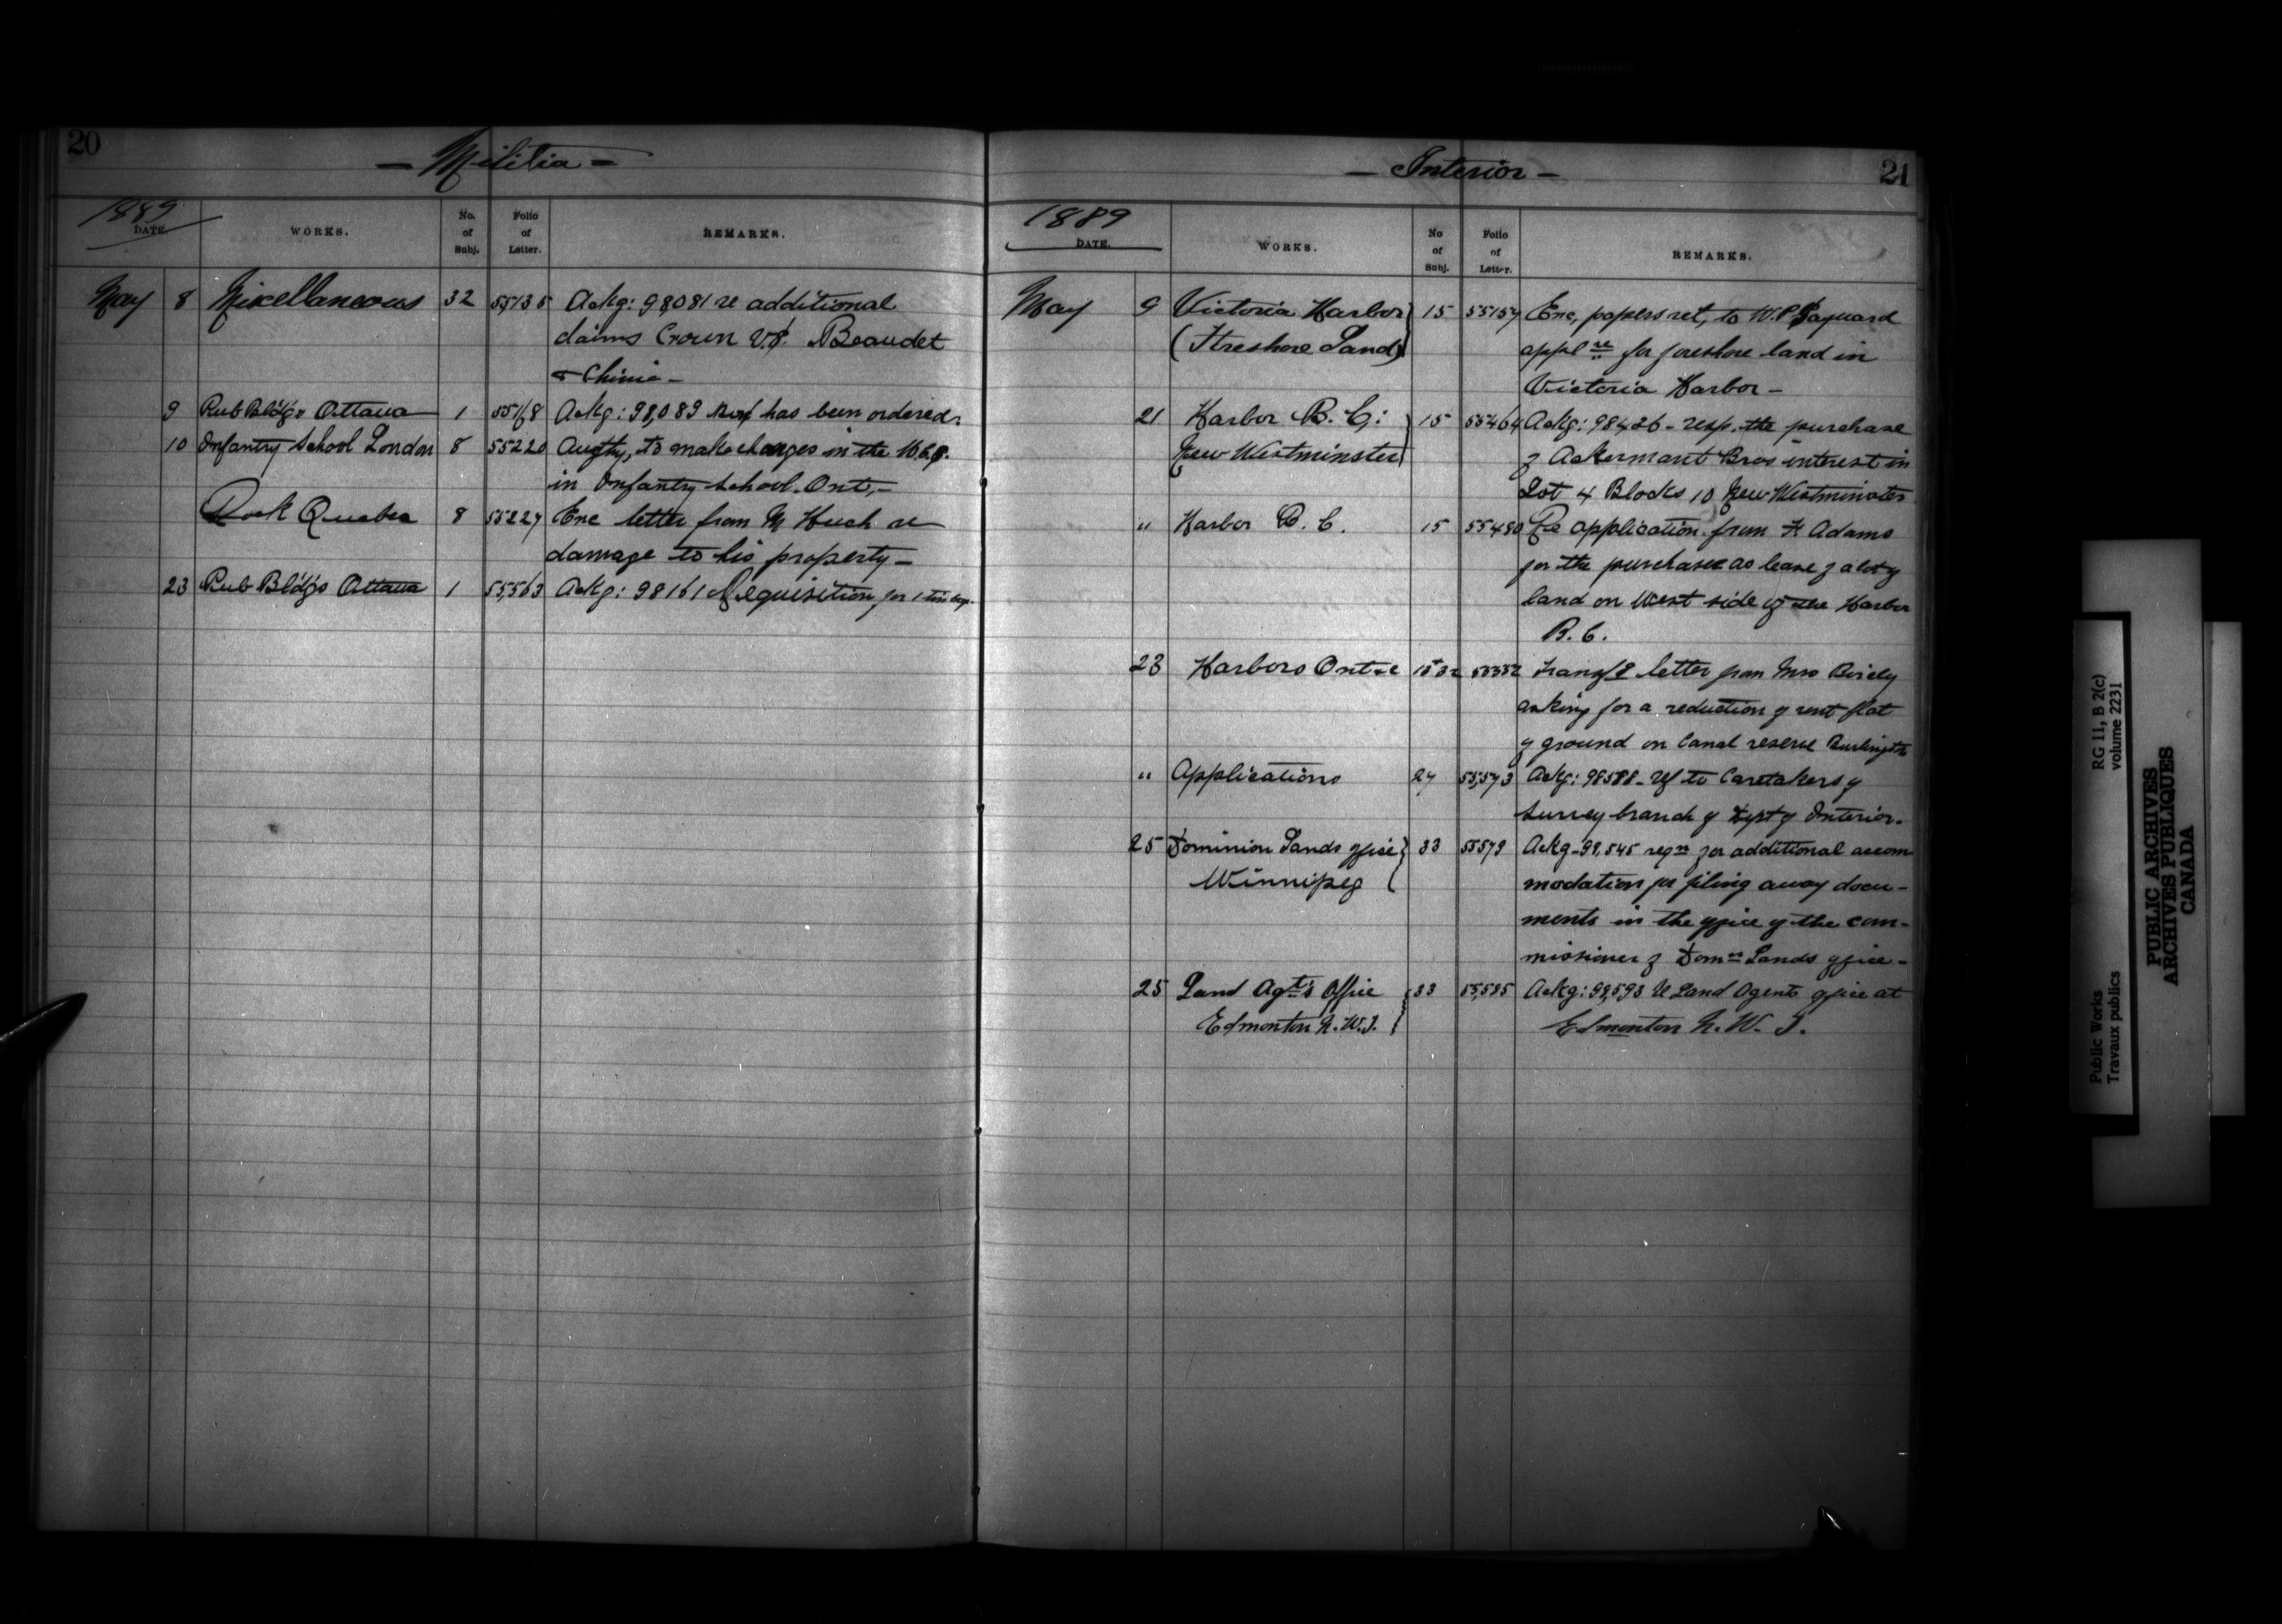 20
— Militia —
1889
DATE. WORKS. No. of Subj. Folio of Letter. REMARKS.
May 8 Miscellaneous 32 55135 Ackg: 98,081 re additional
claims Crown vs. Beaudet
& Chinic —
9 Pub Bldgs Ottawa 1 Ackg: 98,089 has been ordered.
10 Infantry School London 8 55220 Augthy, to make changes in the
in Infantry School. Ont, —
Dock Quebec 8 55227 Enc letter from M Huch re
damage to his property —
23 Pub Bldgs Ottawa 1 55,563 Ackg: 98161 Requisition for 1
— Interior —
21
1889
DATE. WORKS. No of Subj. Folio of Letter. REMARKS.
May 9 Victoria Harbor 15 55157 Enc, papers ret, to W.P. Sayward
(Foreshore Land) appl re for foreshore land in
Victoria Harbor —
21 Harbor B.C: 15 55464 Ackg: 98426 - resp. the purchase
New Westminster of Ackermant Bros interest in
Lot 4 Blocks 10 New Westminster
" Harbor B.C. 15 55480 Re application from Adams
for the purchase as lease of a lot of
land on West side of the Harbor
B.C.
23 Harbors Ont letter from Mrs Birely
asking for a reduction of rent
of ground on Canal reserve Burlington
" Applications 27 55,573 Ackg: 98588 - ref to Caretakers of
Survey branch of Dept of Interior.
25 Dominion Lands office 33 55579 Ackg - 98,545 reqn for additional accom
Winnipeg modation for filing away docu-
ments in the office of the com-
missioner of Domn Lands office -
25 Land Agt's Office 33 55,585 Ackg: 98,593 re Land Agents office at
Edmonton N.W.T. Edmonton N.W.T.
Public Works RG 11, B 2(c)
Travaux publics volume 2231
PUBLIC ARCHIVES
ARCHIVES PUBLIQUES
CANADA